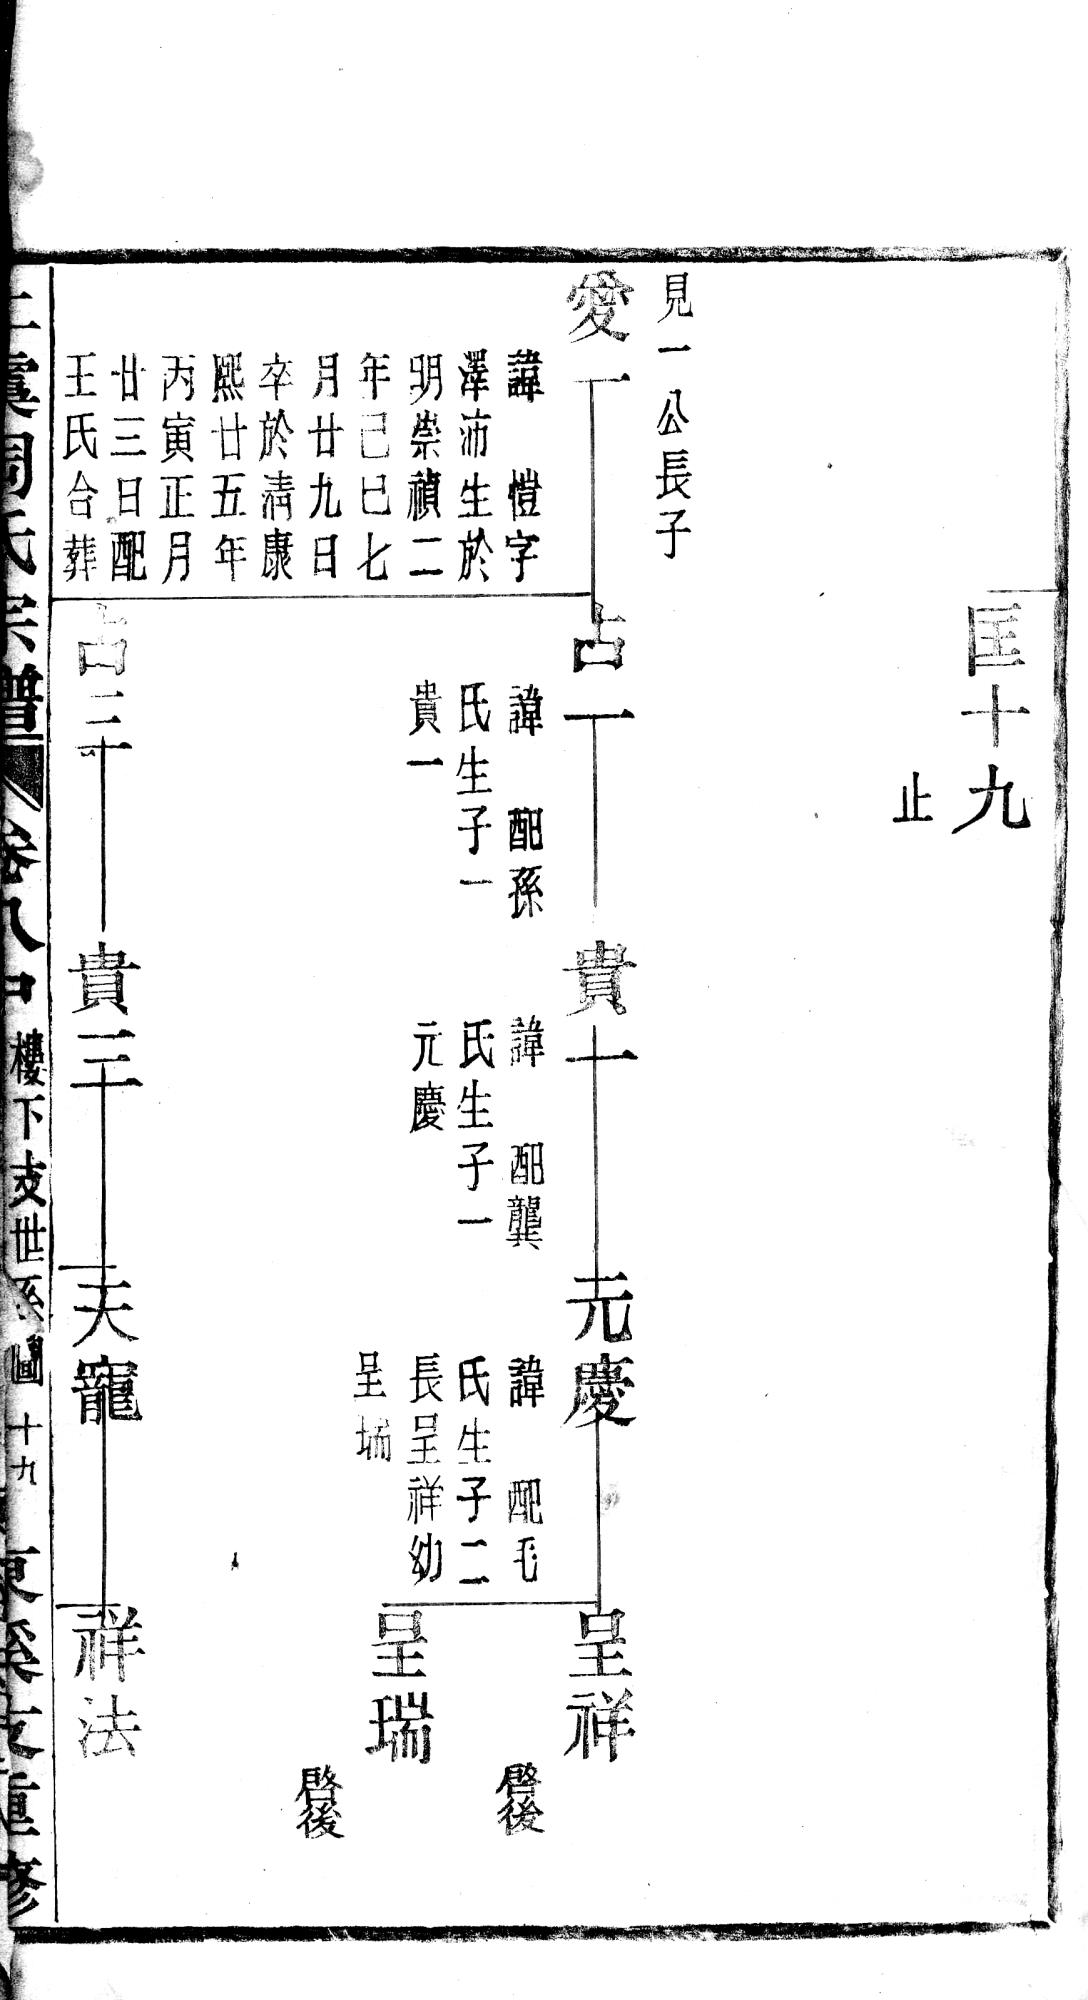 匡十九
止
見一公長子
愛一
諱　愷字
澤沛生於
明崇禎二
年己巳七
月廿九日
卒於清康
熙廿五年
丙寅正月
廿三日配
王氏合葬
占一
諱　配孫
氏生子一
貴一
貴一
諱　配龔
氏生子一
元慶
元慶
諱　配毛
氏生子二
長呈祥幼
呈瑞
呈祥
啓後
呈瑞
啓後
占二
貴三
天寵
祥法
上虞周氏宗譜
卷八中
樓下支世系圖
十九
東溪支重修